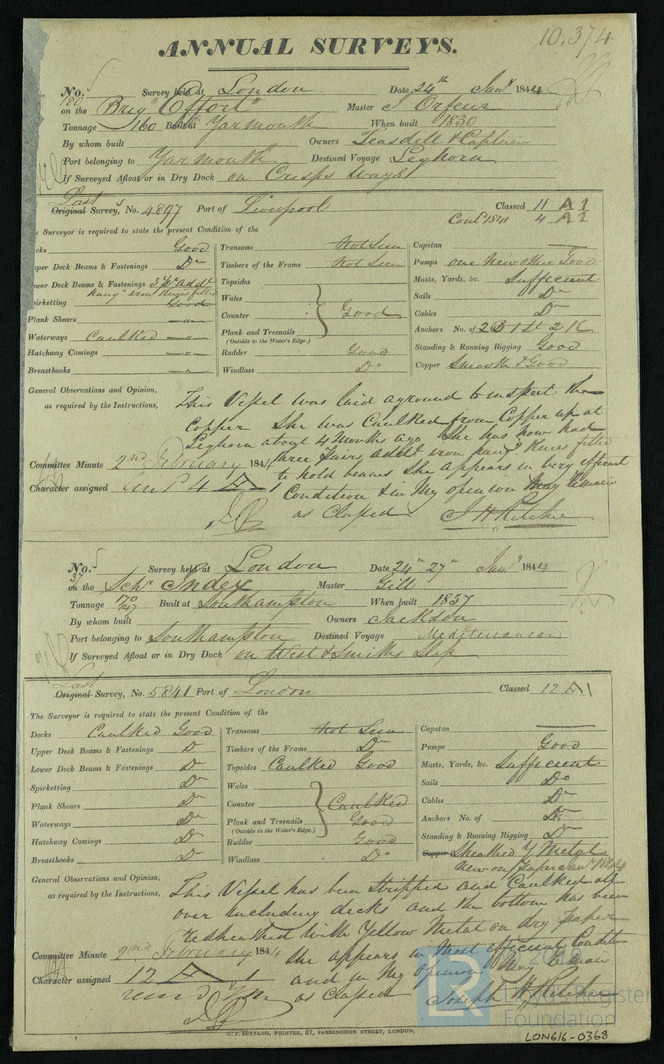 10,374
ANNUAL SURVEYS.
No. 180 Survey held at London Date 24th Jany 1844
on the Brig "Effort" Master J Orfeur
Tonnage 160 Built at Yarmouth When built 1830
By whom built Owners Teasdell & Captain
Port belonging to Yarmouth Destined Voyage Leghorn
If Surveyed Afloat or in Dry Dock on Crisps ways
Last
Original Survey, No. 4897 Port of Liverpool Classed 11 A 1
Contd 1841 4 A 1
Surveyor is required to state the present Condition of the
cks Good Transoms Not Seen Capstan
pper Deck Beams & Fastenings Do Timbers of the Frame Not Seen Pumps one New other Good
ower Deck Beams & Fastenings 3 Pr addl Topsides Masts, Yards, &c. Sufficient
hang' iron knees fitted
pirketting Good Wales Sails Do
Plank Shears " Counter Good Cables Do
Waterways Caulked " Plank and Treenails Anchors No. of 2 B 1 St 2 K
(Outside to the Water's Edge.)
Hatchway Comings " Rudder Good Standing & Running Rigging Good
Breasthooks " Windlass Do Copper Smooth & Good
General Observations and Opinion,
as required by the Instructions,
This Vessel was laid aground to inspect the
Copper She was Caulked from Copper up at
Leghorn about 4 Months ago She has now had
three pairs addl iron hang' Knees fitted
to hold beams She appears in very efficient
Condition & in My opinion May remain
as Classed J H Ritchie
Committee Minute 2nd February 1844
Character assigned 4 A 1
No. 37 Survey held at London Date 24th 27th Jany 1844
on the Schr Index Master Gill
Tonnage 170/147 Built at Southampton When built 1837
By whom built Owners Jackson
Port belonging to Southampton Destined Voyage Mediterranean
If Surveyed Afloat or in Dry Dock on West & Smiths Slip
Last
Original Survey, No. 5841 Port of London Classed 12 A 1
The Surveyor is required to state the present Condition of the
Decks Caulked Good Transoms Not Seen Capstan
Upper Deck Beams & Fastenings Do Timbers of the Frame Do Pumps Good
Lower Deck Beams & Fastenings Do Topsides Caulked Good Masts, Yards, &c. Sufficient
Spirketting Do Wales Sails Do
Plank Shears Do Counter Caulked Cables Do
Waterways Do Plank and Treenails Good Anchors No. of Do
(Outside to the Water's Edge.)
Hatchway Comings Do Rudder Good Standing & Running Rigging Do
Breasthooks Do Windlass Do Copper Sheathed Y Metal
new on Paper
General Observations and Opinion,
as required by the Instructions,
This Vessel has been stripped and Caulked all
over including decks and the bottom has been
Resheathed with Yellow Metal on dry paper
she appears in Most efficient Condition
and in My opinion May remain
as Classed Joseph H Ritchie
Committee Minute 2nd February 1844
Character assigned 12 A 1
V. P. SEYFANG, PRINTER, 57, FARRINGDON STREET, LONDON.
LR
Lloyd's Register
Foundation
LON616-0368